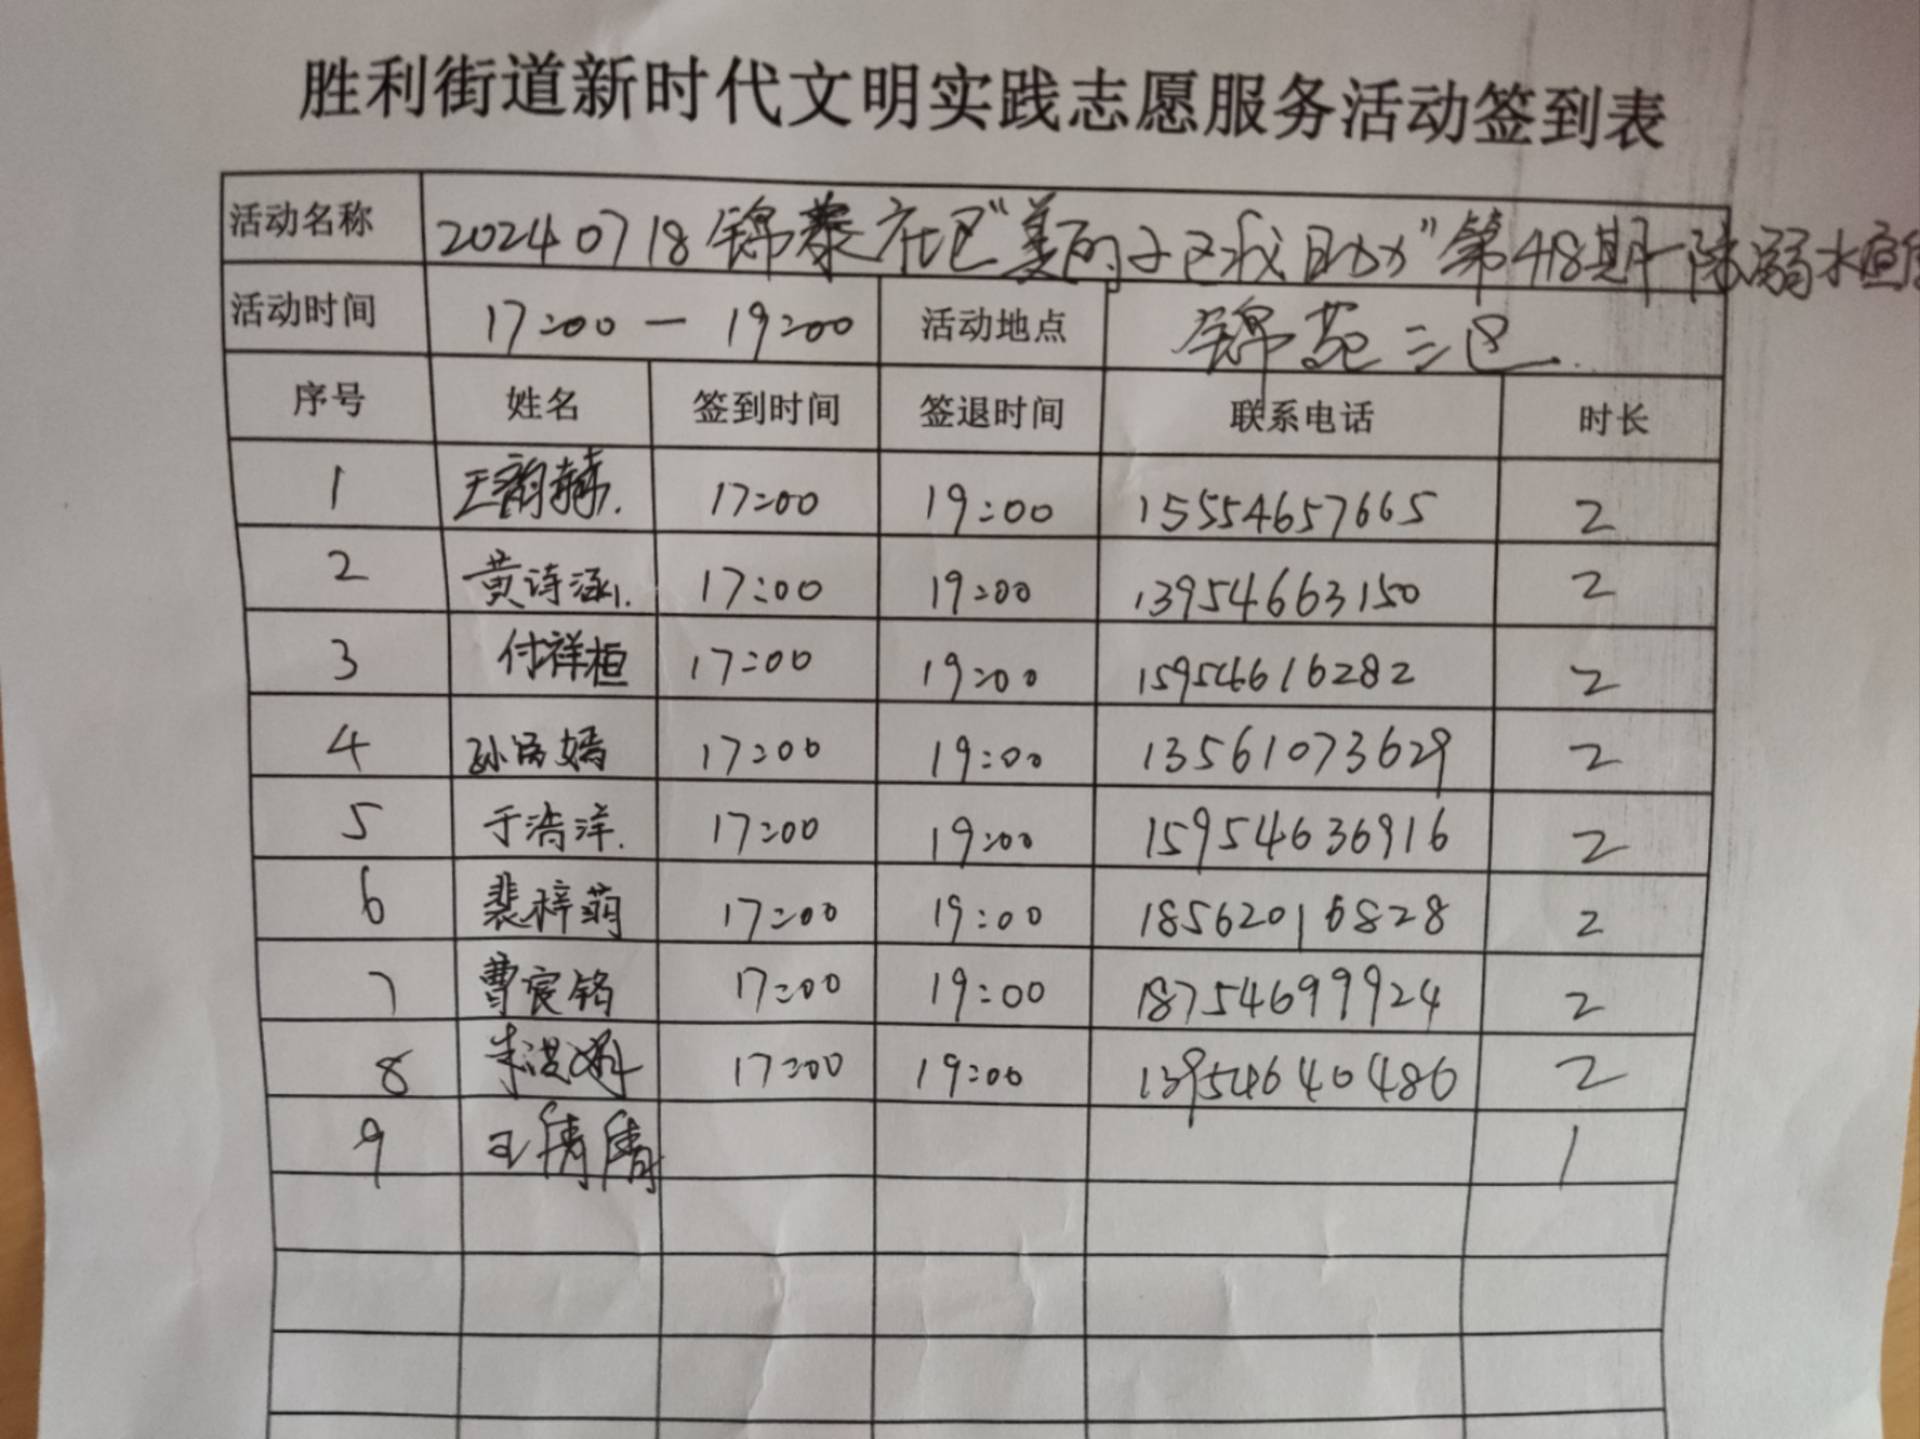 胜利街道新时代文明实践志愿服务活动签到表
活动名称 20240718锦泰社区“美的小区我助力”第48期-除弱水
活动时间 17:00-19:00 活动地点 锦苑三区
序号 姓名 签到时间 签退时间 联系电话 时长
1 王韵 17:00 19:00 15554657665 2
2 黄诗涵 17:00 19:00 13954663150 2
3 付祥桓 17:00 19:00 15954616282 2
4 孙嫣 17:00 19:00 13561073629 2
5 于浩洋 17:00 19:00 15954636916 2
6 裴梓萌 17:00 19:00 18562016828 2
7 曹宸铭 17:00 19:00 18754699924 2
8 朱 17:00 19:00 13954640486 2
9 王倩倩 1